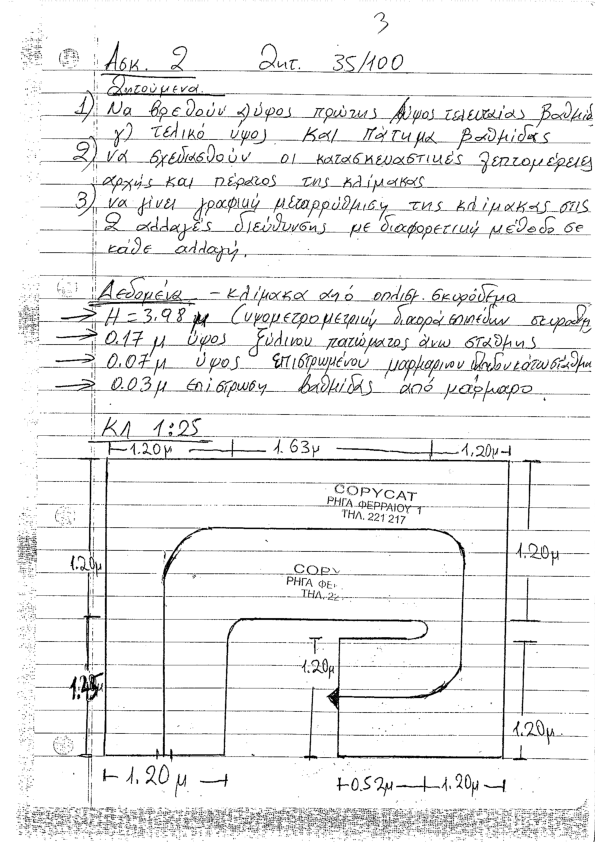 3
Ασκ. 2 Ζητ. 35/100
Ζητούμενα.
1) Να βρεθούν α) ύψος πρώτης β) ύψος τελευταίας βαθμίδ
γ) τελικό ύψος και πάτημα βαθμίδας
2) να σχεδιασθούν οι κατασκευαστικές λεπτομέρειες
αρχής και πέρατος της κλίμακας
3) να γίνει γραφική μεταρρύθμιση της κλίμακας στις
2 αλλαγές διεύθυνσης με διαφορετική μέθοδο σε
κάθε αλλαγή.
Δεδομένα - κλίμακα από οπλισμ. σκυρόδεμα
→ H = 3.98 μ (υψομετρομετρική διαφορά επιπέδων
→ 0.17 μ ύψος ξύλινου πατώματος άνω στάθμης
→ 0.07 μ ύψος επιστρωμένου μαρμαρινου κάτω στάθμη
→ 0.03 μ επίστρωση βαθμίδας από μάρμαρο.
ΚΛ 1:25
1.20μ 1.63μ 1.20μ
COPYCAT
ΡΗΓΑ ΦΕΡΡΑΙΟΥ 1
ΤΗΛ. 221 217
1.20μ 1.20μ
COPY
ΡΗΓΑ ΦΕ
ΤΗΛ. 22
1.20μ
1.45
1.20μ
1.20μ 0.52μ 1.20μ